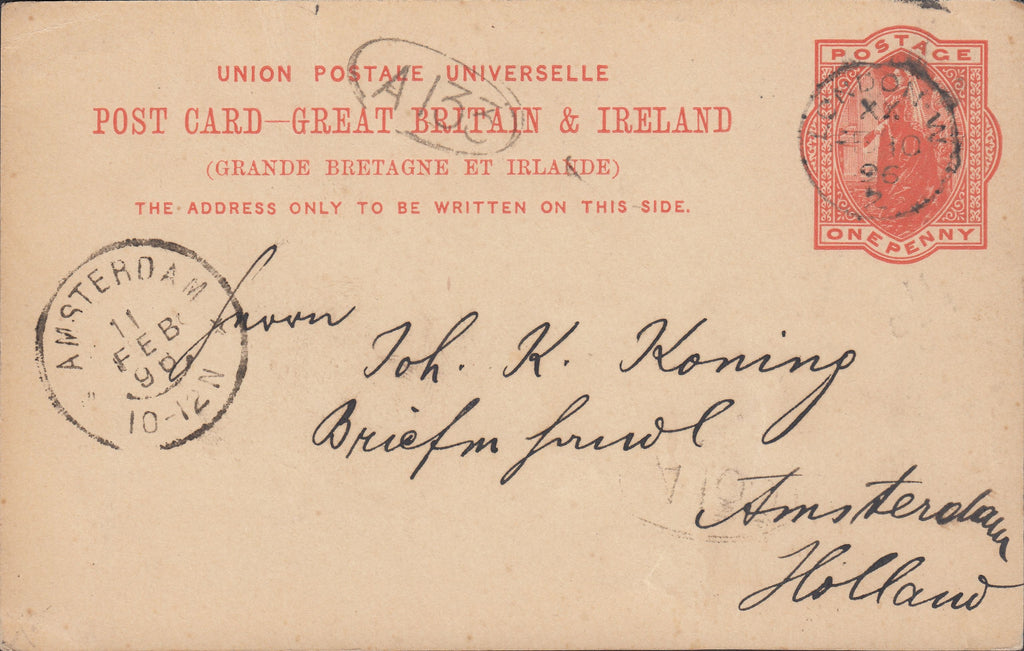 POSTAGE
ONE PENNY
UNION POSTALE UNIVERSELLE
A133
POST CARD—GREAT BRITAIN & IRELAND
(GRANDE BRETAGNE ET IRLANDE)
THE ADDRESS ONLY TO BE WRITTEN ON THIS SIDE.
LONDON W
10
96
AMSTERDAM
11
FEB
10-12N
Herrn
Joh. K. Koning
Amsterdam
Holland